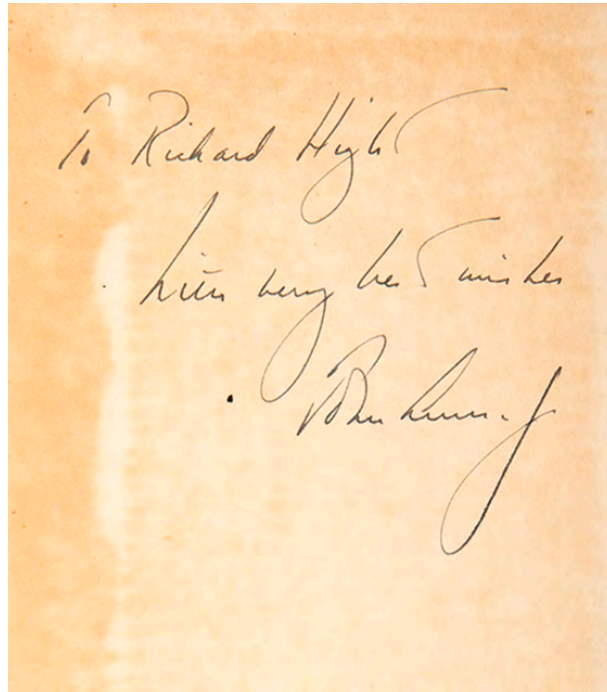 To Richard Hight
with very best wishes
John Kennedy